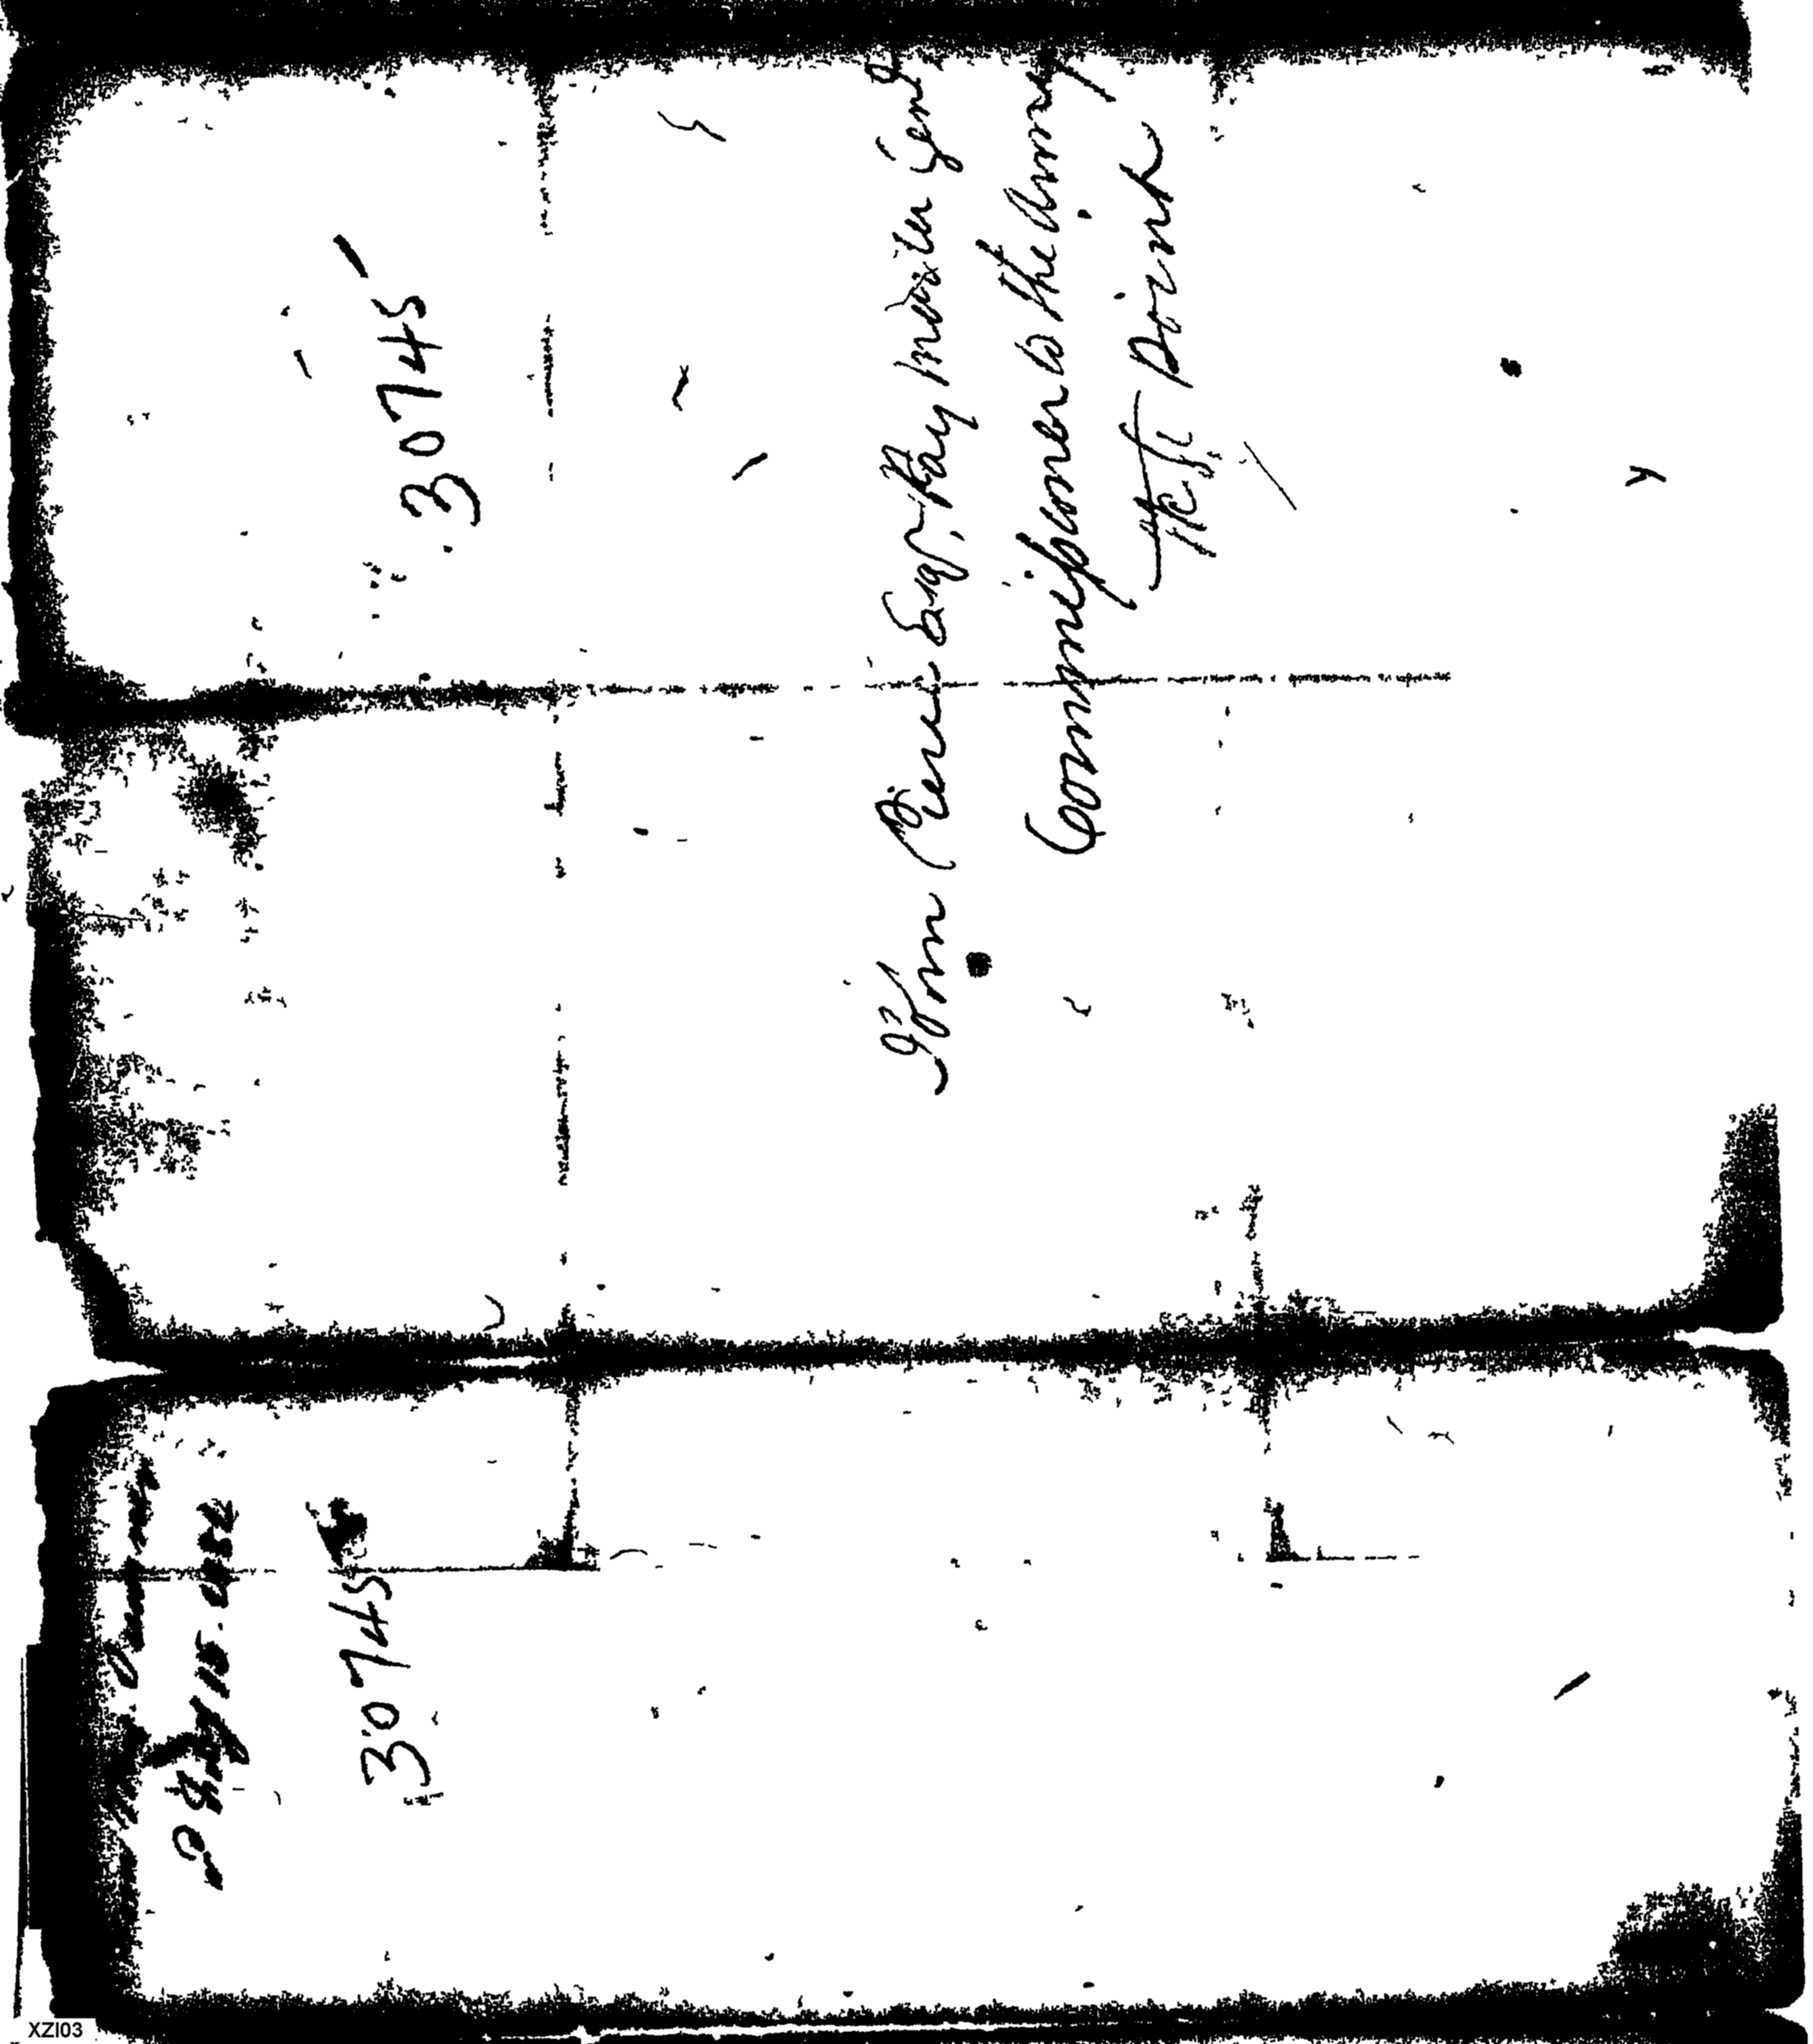 30745
John Pierce Esqr. Pay Master Genl
Commissioner to the Army
West Point
30745
XZI03